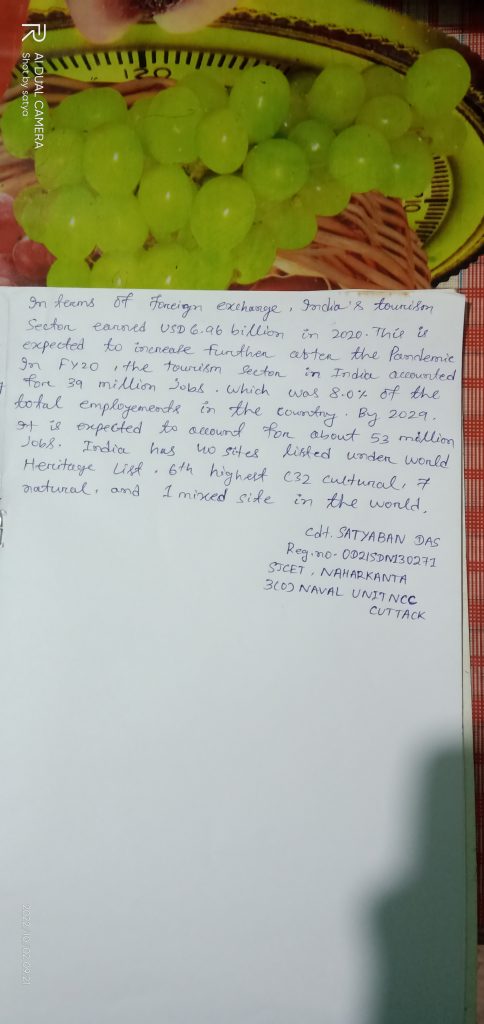 AI DUAL CAMERA
Shot by satya
120
In terms of foreign exchange, India's tourism
Sector earned USD 6.96 billion in 2020. This is
expected to increase further after the Pandemic
In FY20, the tourism sector in India accounted
for 39 million Jobs. which was 8.0% of the
total employements in the country. By 2029.
It is expected to account for about 53 million
Jobs. India has 40 sites listed under world
Heritage List. 6th highest (32 cultural, 7
natural, and 1 mixed site in the world.
Cdt. SATYABAN DAS
Reg.no- OD21SDN130271
SJCET, NAHARKANTA
3(O) NAVAL UNIT NCC
CUTTACK